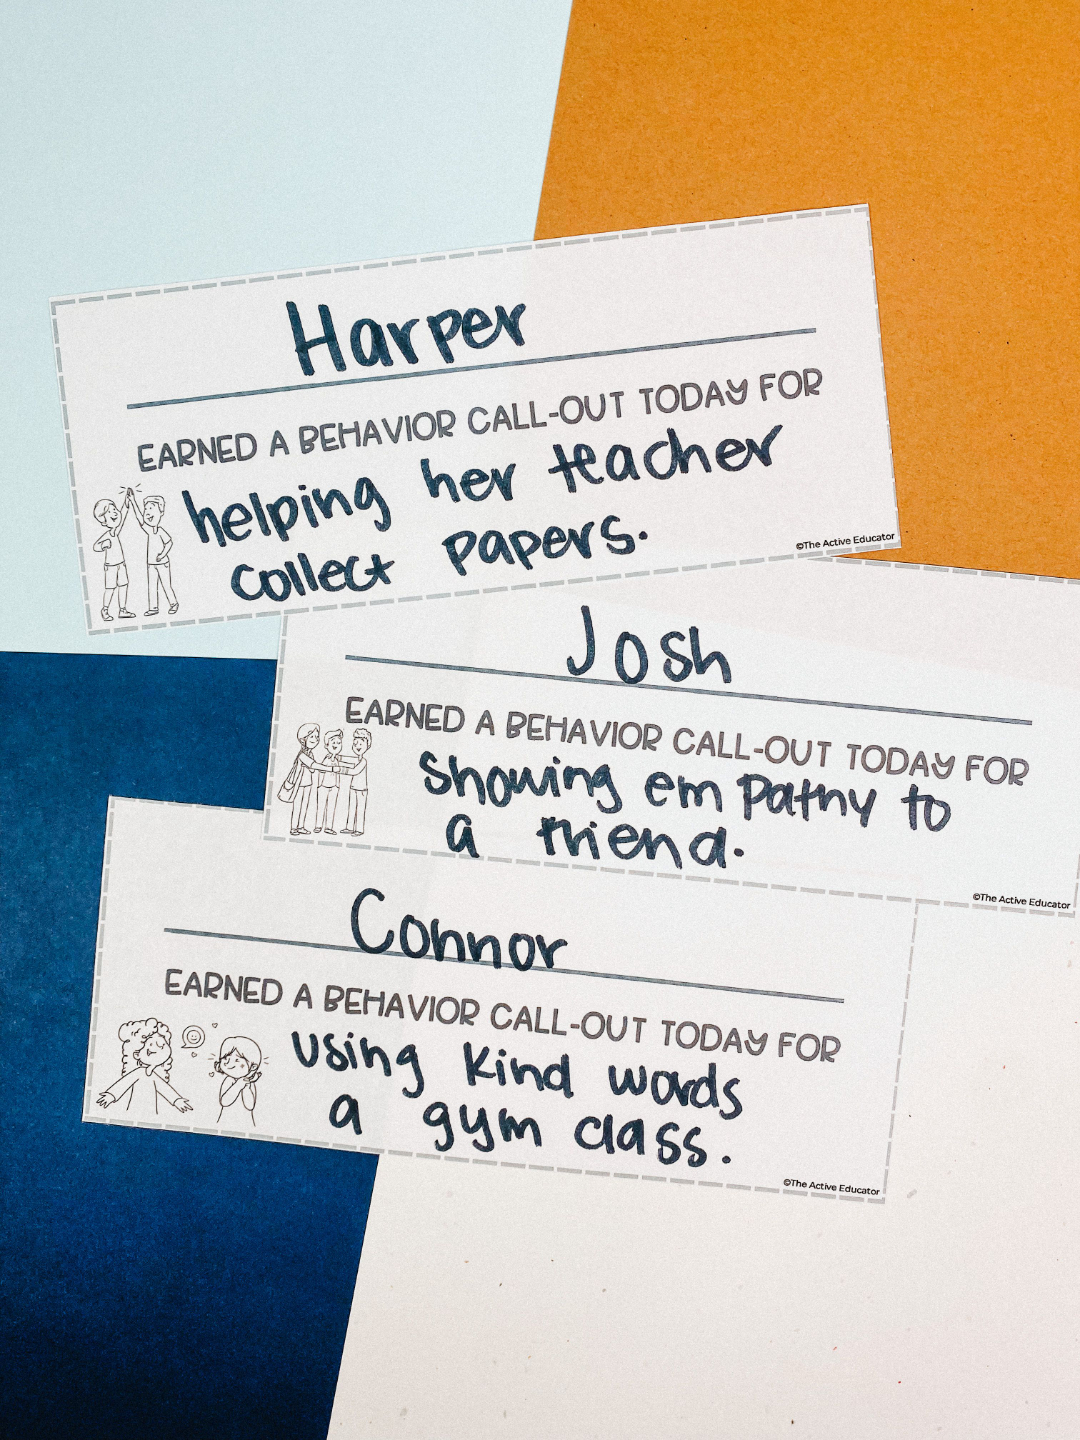 Harper
EARNED A BEHAVIOR CALL-OUT TODAY FOR
helping her teacher
collect papers.
©The Active Educator
Josh
EARNED A BEHAVIOR CALL-OUT TODAY FOR
showing empathy to
a friend.
©The Active Educator
Connor
EARNED A BEHAVIOR CALL-OUT TODAY FOR
using kind words
a gym class.
©The Active Educator